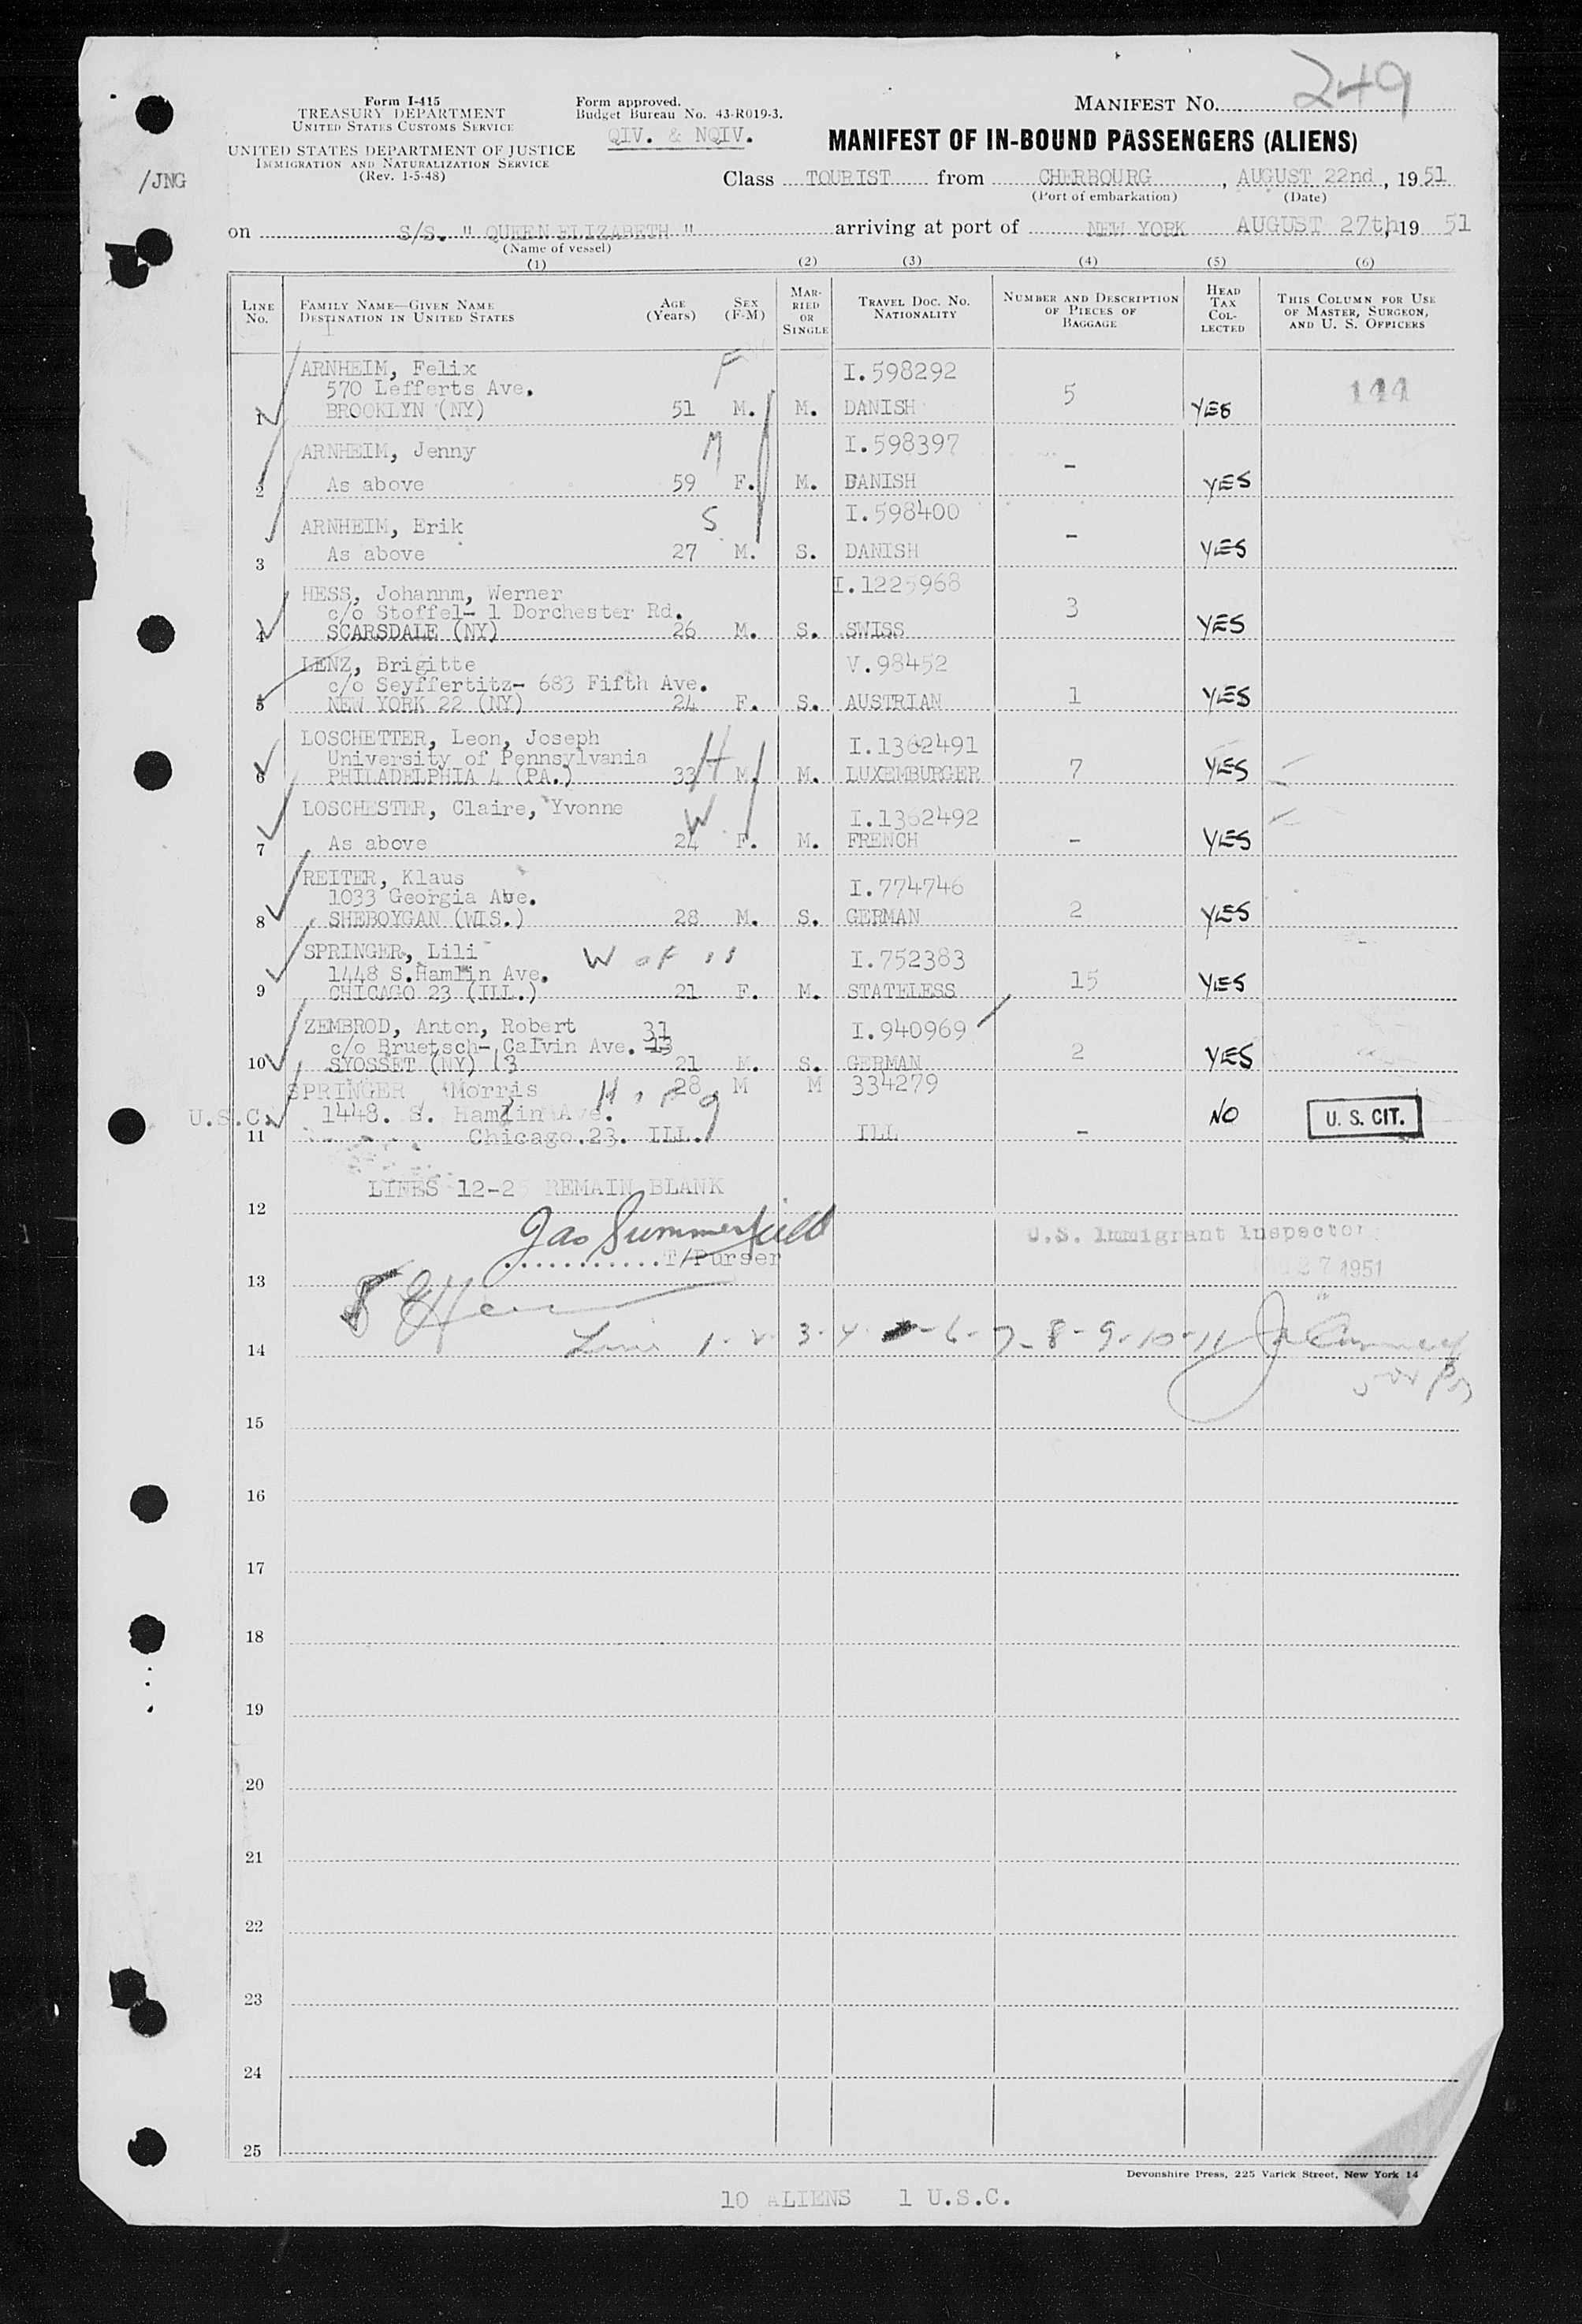 249
Form I-415
TREASURY DEPARTMENT
UNITED STATES CUSTOMS SERVICE
UNITED STATES DEPARTMENT OF JUSTICE
IMMIGRATION AND NATURALIZATION SERVICE
(Rev. 1-5-48)
Form approved.
Budget Bureau No. 43-R019-3.
QIV. & NQIV.
MANIFEST No.
MANIFEST OF IN-BOUND PASSENGERS (ALIENS)
/JNG
Class TOURIST from CHERBOURG, AUGUST 22nd, 1951
(Port of embarkation) (Date)
on S/S. " QUEEN ELIZABETH " arriving at port of NEW YORK AUGUST 27th, 19 51
(Name of vessel)
(1) (2) (3) (4) (5) (6)
LINE No. FAMILY NAME—GIVEN NAME DESTINATION IN UNITED STATES AGE (Years) SEX (F-M) MARRIED OR SINGLE TRAVEL DOC. No. NATIONALITY NUMBER AND DESCRIPTION OF PIECES OF BAGGAGE HEAD TAX COLLECTED THIS COLUMN FOR USE OF MASTER, SURGEON, AND U. S. OFFICERS
ARNHEIM, Felix F I.598292
570 Lefferts Ave. 5 144
1 BROOKLYN (NY) 51 M. M. DANISH YES
ARNHEIM, Jenny M I.598397
2 As above 59 F. M. DANISH - YES
ARNHEIM, Erik S I.598400
3 As above 27 M. S. DANISH - YES
HESS, Johannm, Werner I.1225968
c/o Stoffel- 1 Dorchester Rd. 3
4 SCARSDALE (NY) 26 M. S. SWISS YES
LENZ, Brigitte V.98452
c/o Seyffertitz- 683 Fifth Ave.
5 NEW YORK 22 (NY) 24 F. S. AUSTRIAN 1 YES
LOSCHETTER, Leon, Joseph I.1362491
University of Pennsylvania H
6 PHILADELPHIA 4 (PA.) 33 M. M. LUXEMBURGER 7 YES
LOSCHESTER, Claire, Yvonne W I.1362492
7 As above 24 F. M. FRENCH - YES
REITER, Klaus I.774746
1033 Georgia Ave.
8 SHEBOYGAN (WIS.) 28 M. S. GERMAN 2 YES
SPRINGER, Lili W of 11 I.752383
1448 S.Hamlin Ave.
9 CHICAGO 23 (ILL.) 21 F. M. STATELESS 15 YES
ZEMBROD, Anton, Robert 31 I.940969
c/o Bruetsch- Calvin Ave. 13
10 SYOSSET (NY) 21 M. S. GERMAN 2 YES
SPRINGER Morris H. of 9 28 M M 334279
U.S.C. 1448. S. Hamlin Ave. NO U. S. CIT.
11 Chicago.23. ILL. ILL -
LINES 12-25 REMAIN BLANK
12
Jas Summerfield
U.S. Immigrant Inspector
T/Purser
13
27 1951
Line 1-2-3-4-6-7-8-9-10-11
14
15
16
17
18
19
20
21
22
23
24
25
Devonshire Press, 225 Varick Street, New York 14
10 ALIENS 1 U.S.C.